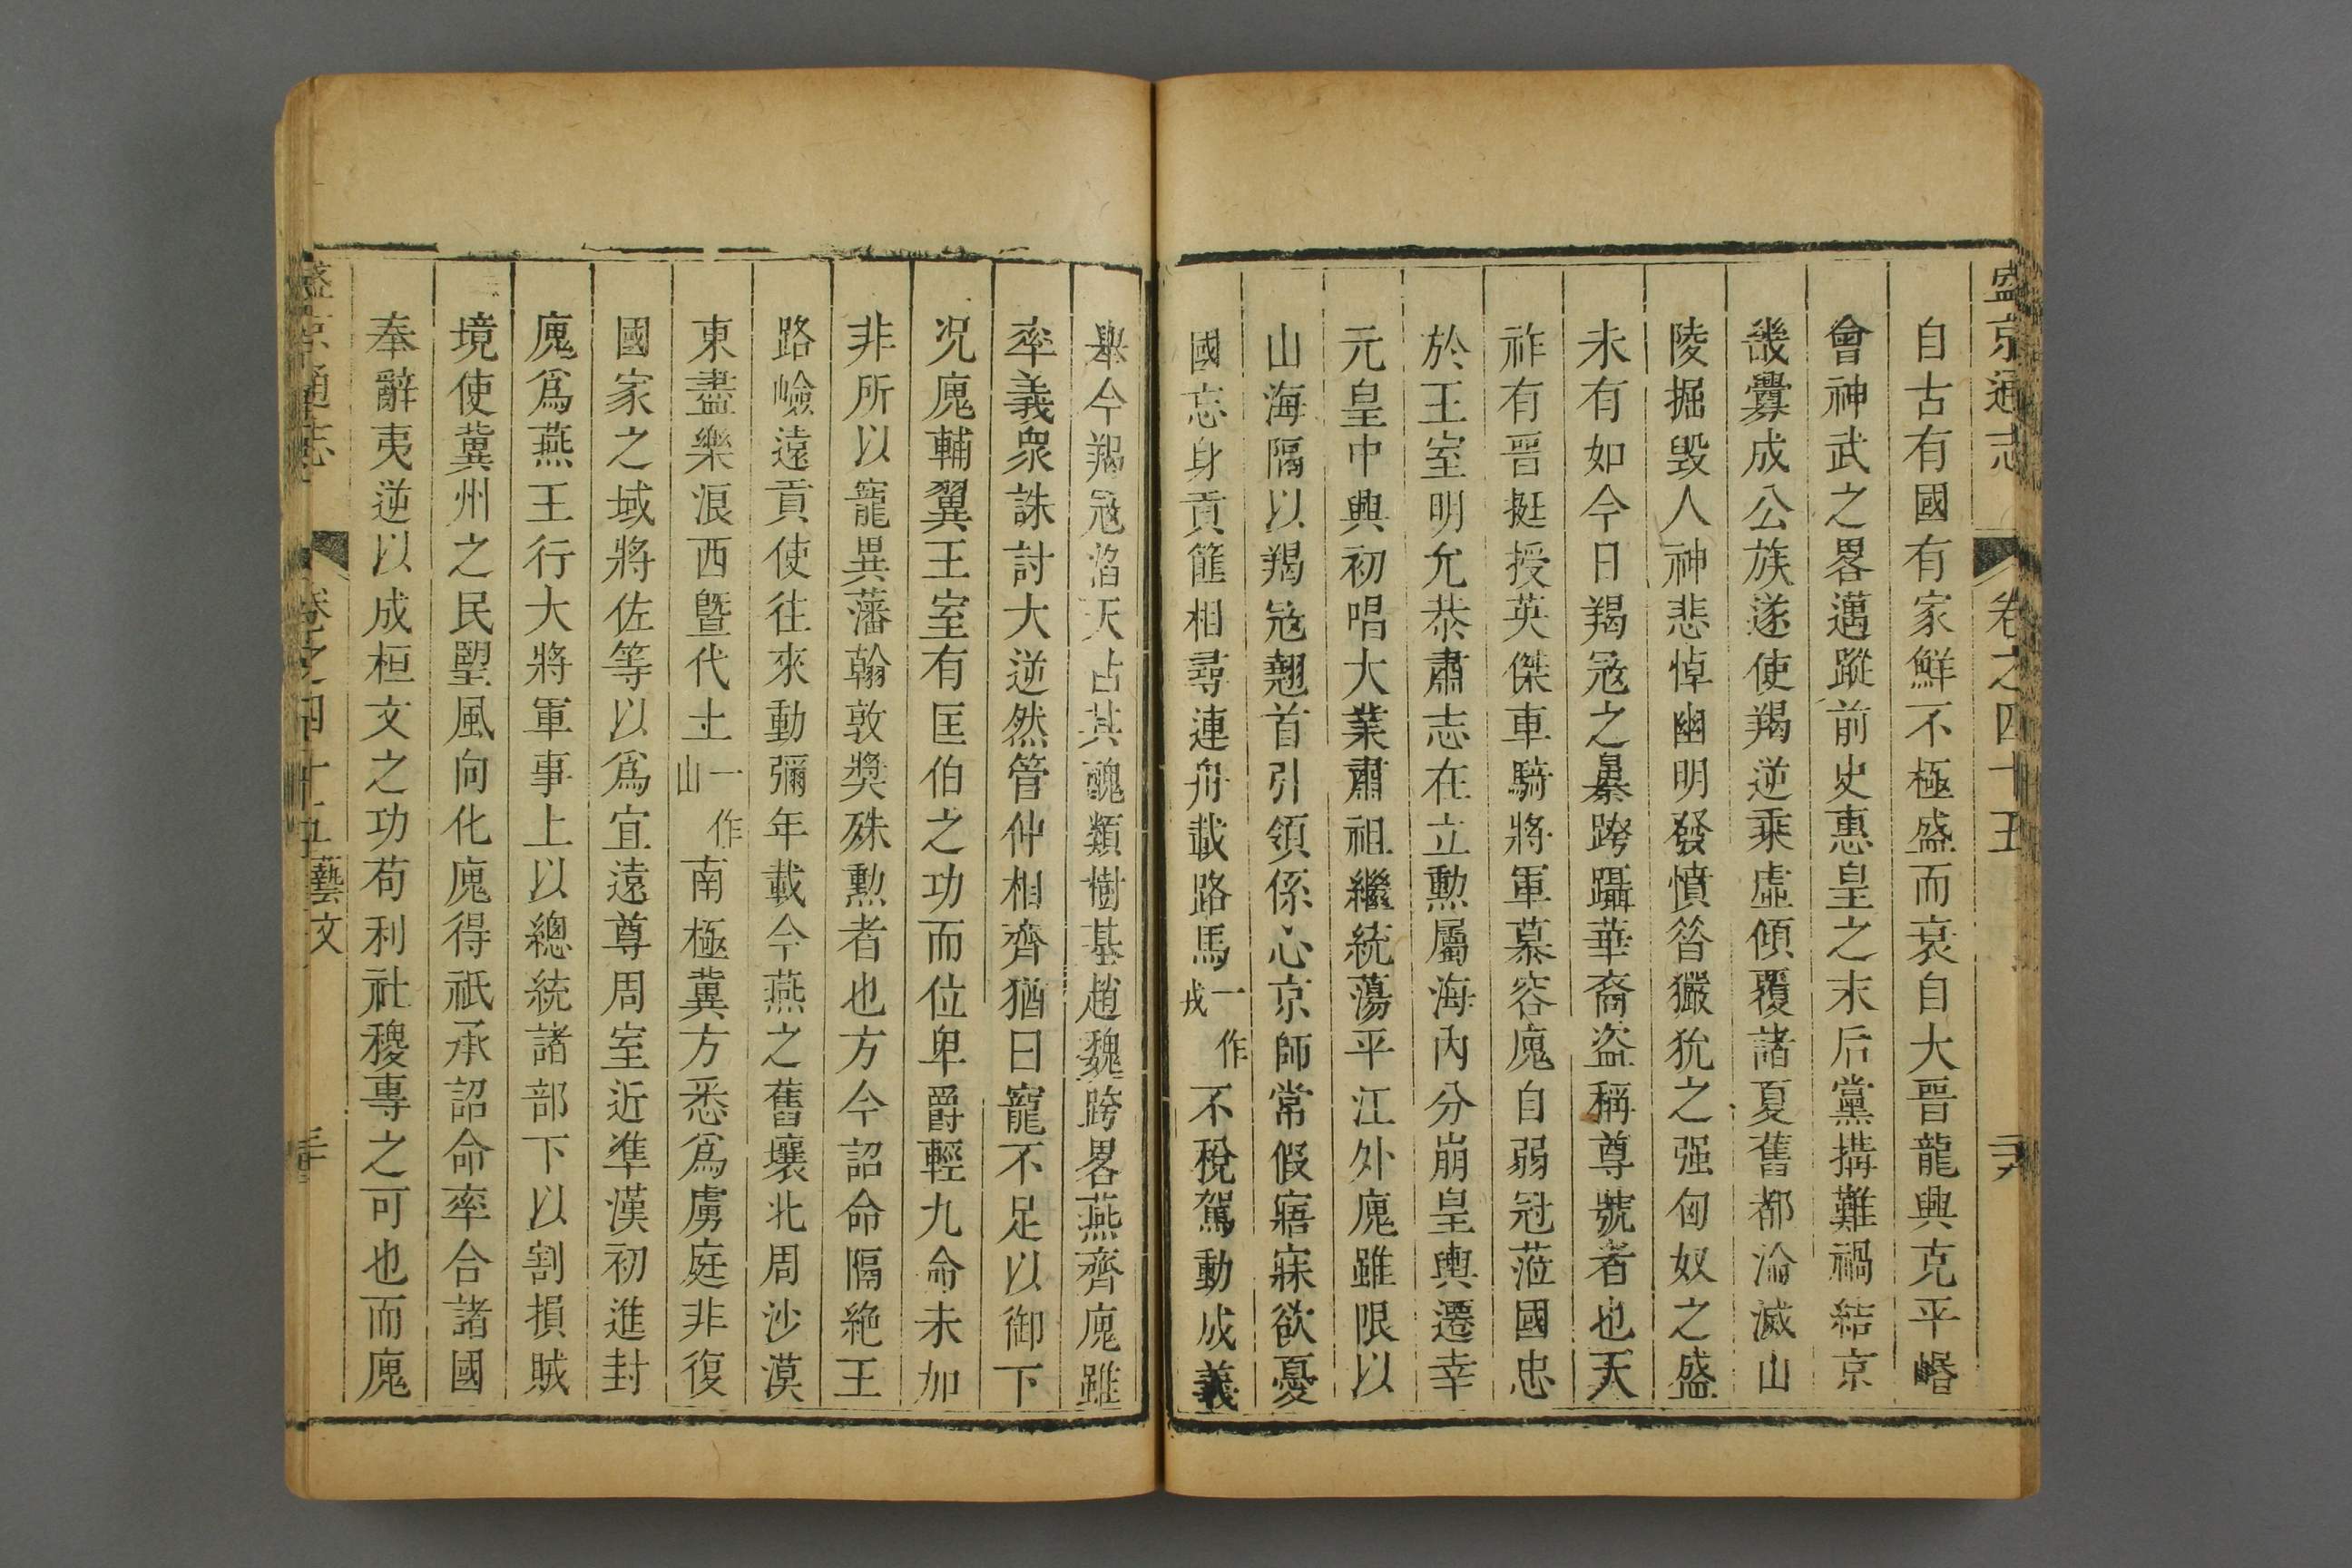 盛京通志 卷之四十五 二六
自古有國有家鮮不極盛而衰自大晉龍興克平崏
會神武之畧邁蹤前史惠皇之末后黨搆難禍結京
畿釁成公族遂使羯逆乘虛傾覆諸夏舊都淪滅山
陵掘毀人神悲悼幽明發憤昝玁狁之强匈奴之盛
未有如今日羯寇之暴跨躡華裔盜稱尊號者也天
祚有晉挺授英傑車騎將軍慕容廆自弱冠蒞國忠
於王室明允恭肅志在立勲屬海內分崩皇輿遷幸
元皇中興初唱大業肅祖繼統蕩平江外廆雖限以
山海隔以羯寇翹首引領係心京師常假寤寐欲憂
國忘身貢篚相尋連舟載路馬一作戎不稅駕動成義
舉今羯寇滔天占其醜類樹基趙魏跨畧燕齊廆雖
率義衆誅討大逆然管仲相齊猶曰寵不足以御下
况廆輔翼王室有匡伯之功而位卑爵輕九命未加
非所以寵異藩翰敦奬殊勲者也方今詔命隔絶王
路嶮遠貢使往來動彌年載今燕之舊壤北周沙漠
東盡樂浪西曁代土一作山南極冀方悉爲虜庭非復
國家之域將佐等以爲宜遠尊周室近準漢初進封
廆爲燕王行大將軍事上以總統諸部下以割損賊
境使冀州之民望風向化廆得祇承詔命率合諸國
奉辭夷逆以成桓文之功苟利社稷專之可也而廆
盛京通志 卷之四十五 藝文